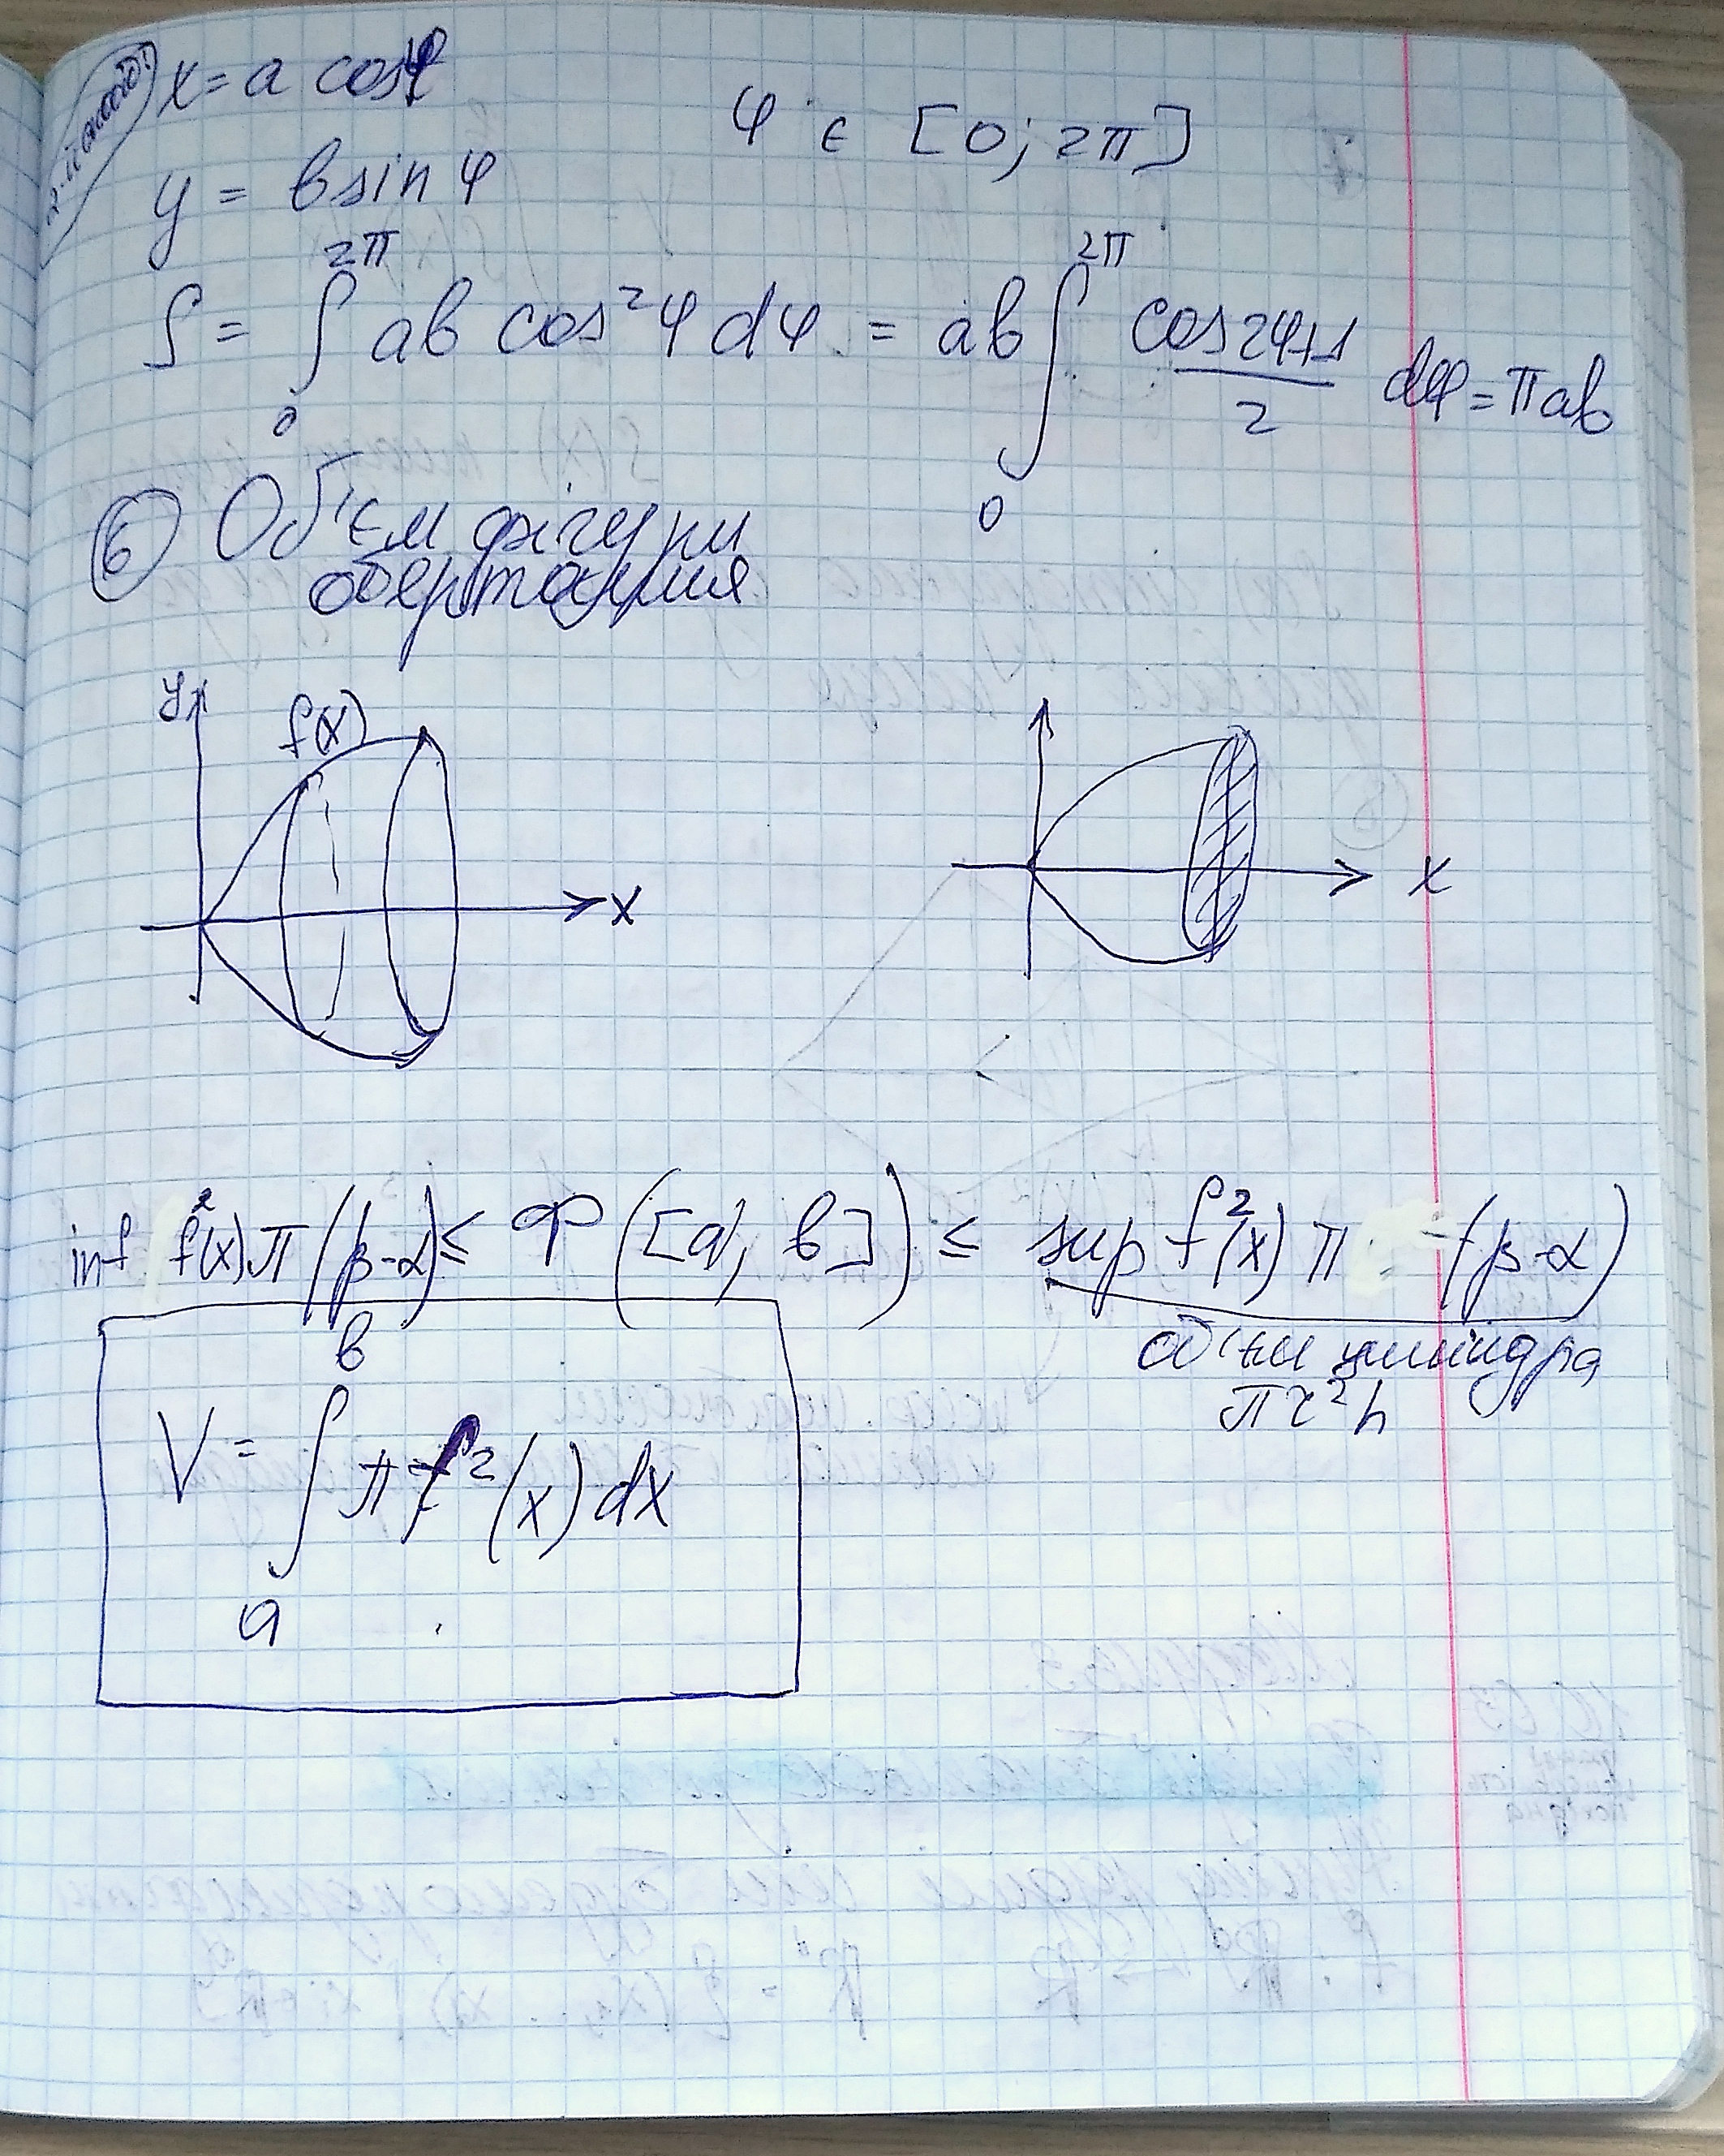 2-ий спосіб!
x = a cosφ
φ ∈ [0; 2π]
y = b sin φ
S = ∫₀^{2π} ab cos²φ dφ = ab ∫₀^{2π} (cos2φ+1)/2 dφ = πab
⑥ Об'єм фігури
обертання
y
f(x)
x
x
inf f²(x) π (β-α) ≤ Φ([a, b]) ≤ sup f²(x) π (β-α)
об'єм циліндра
πr²h
V = ∫ₐᵇ π f²(x) dx